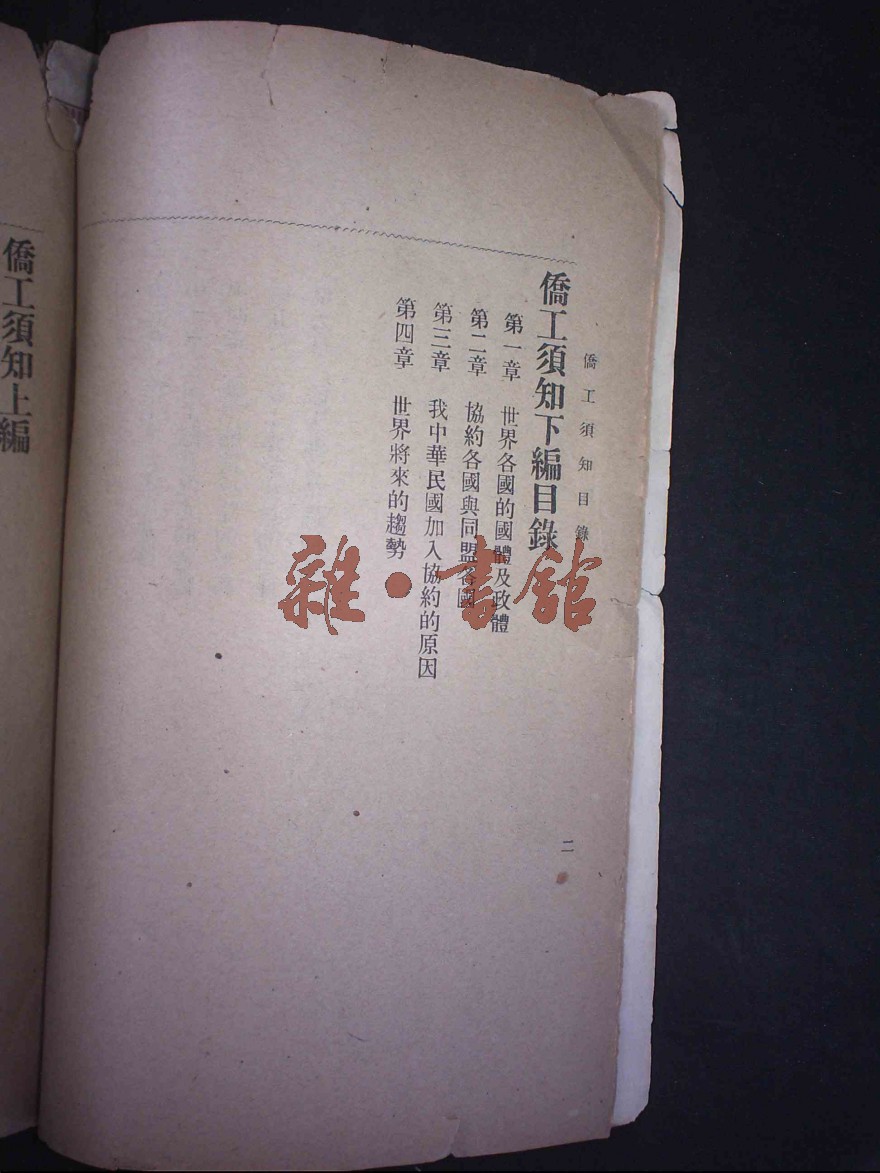 僑工須知目錄
二
僑工須知下編目錄
第一章 世界各國的國體及政體
第二章 協約各國與同盟各國
第三章 我中華民國加入協約的原因
第四章 世界將來的趨勢
僑工須知上編
雜·書館